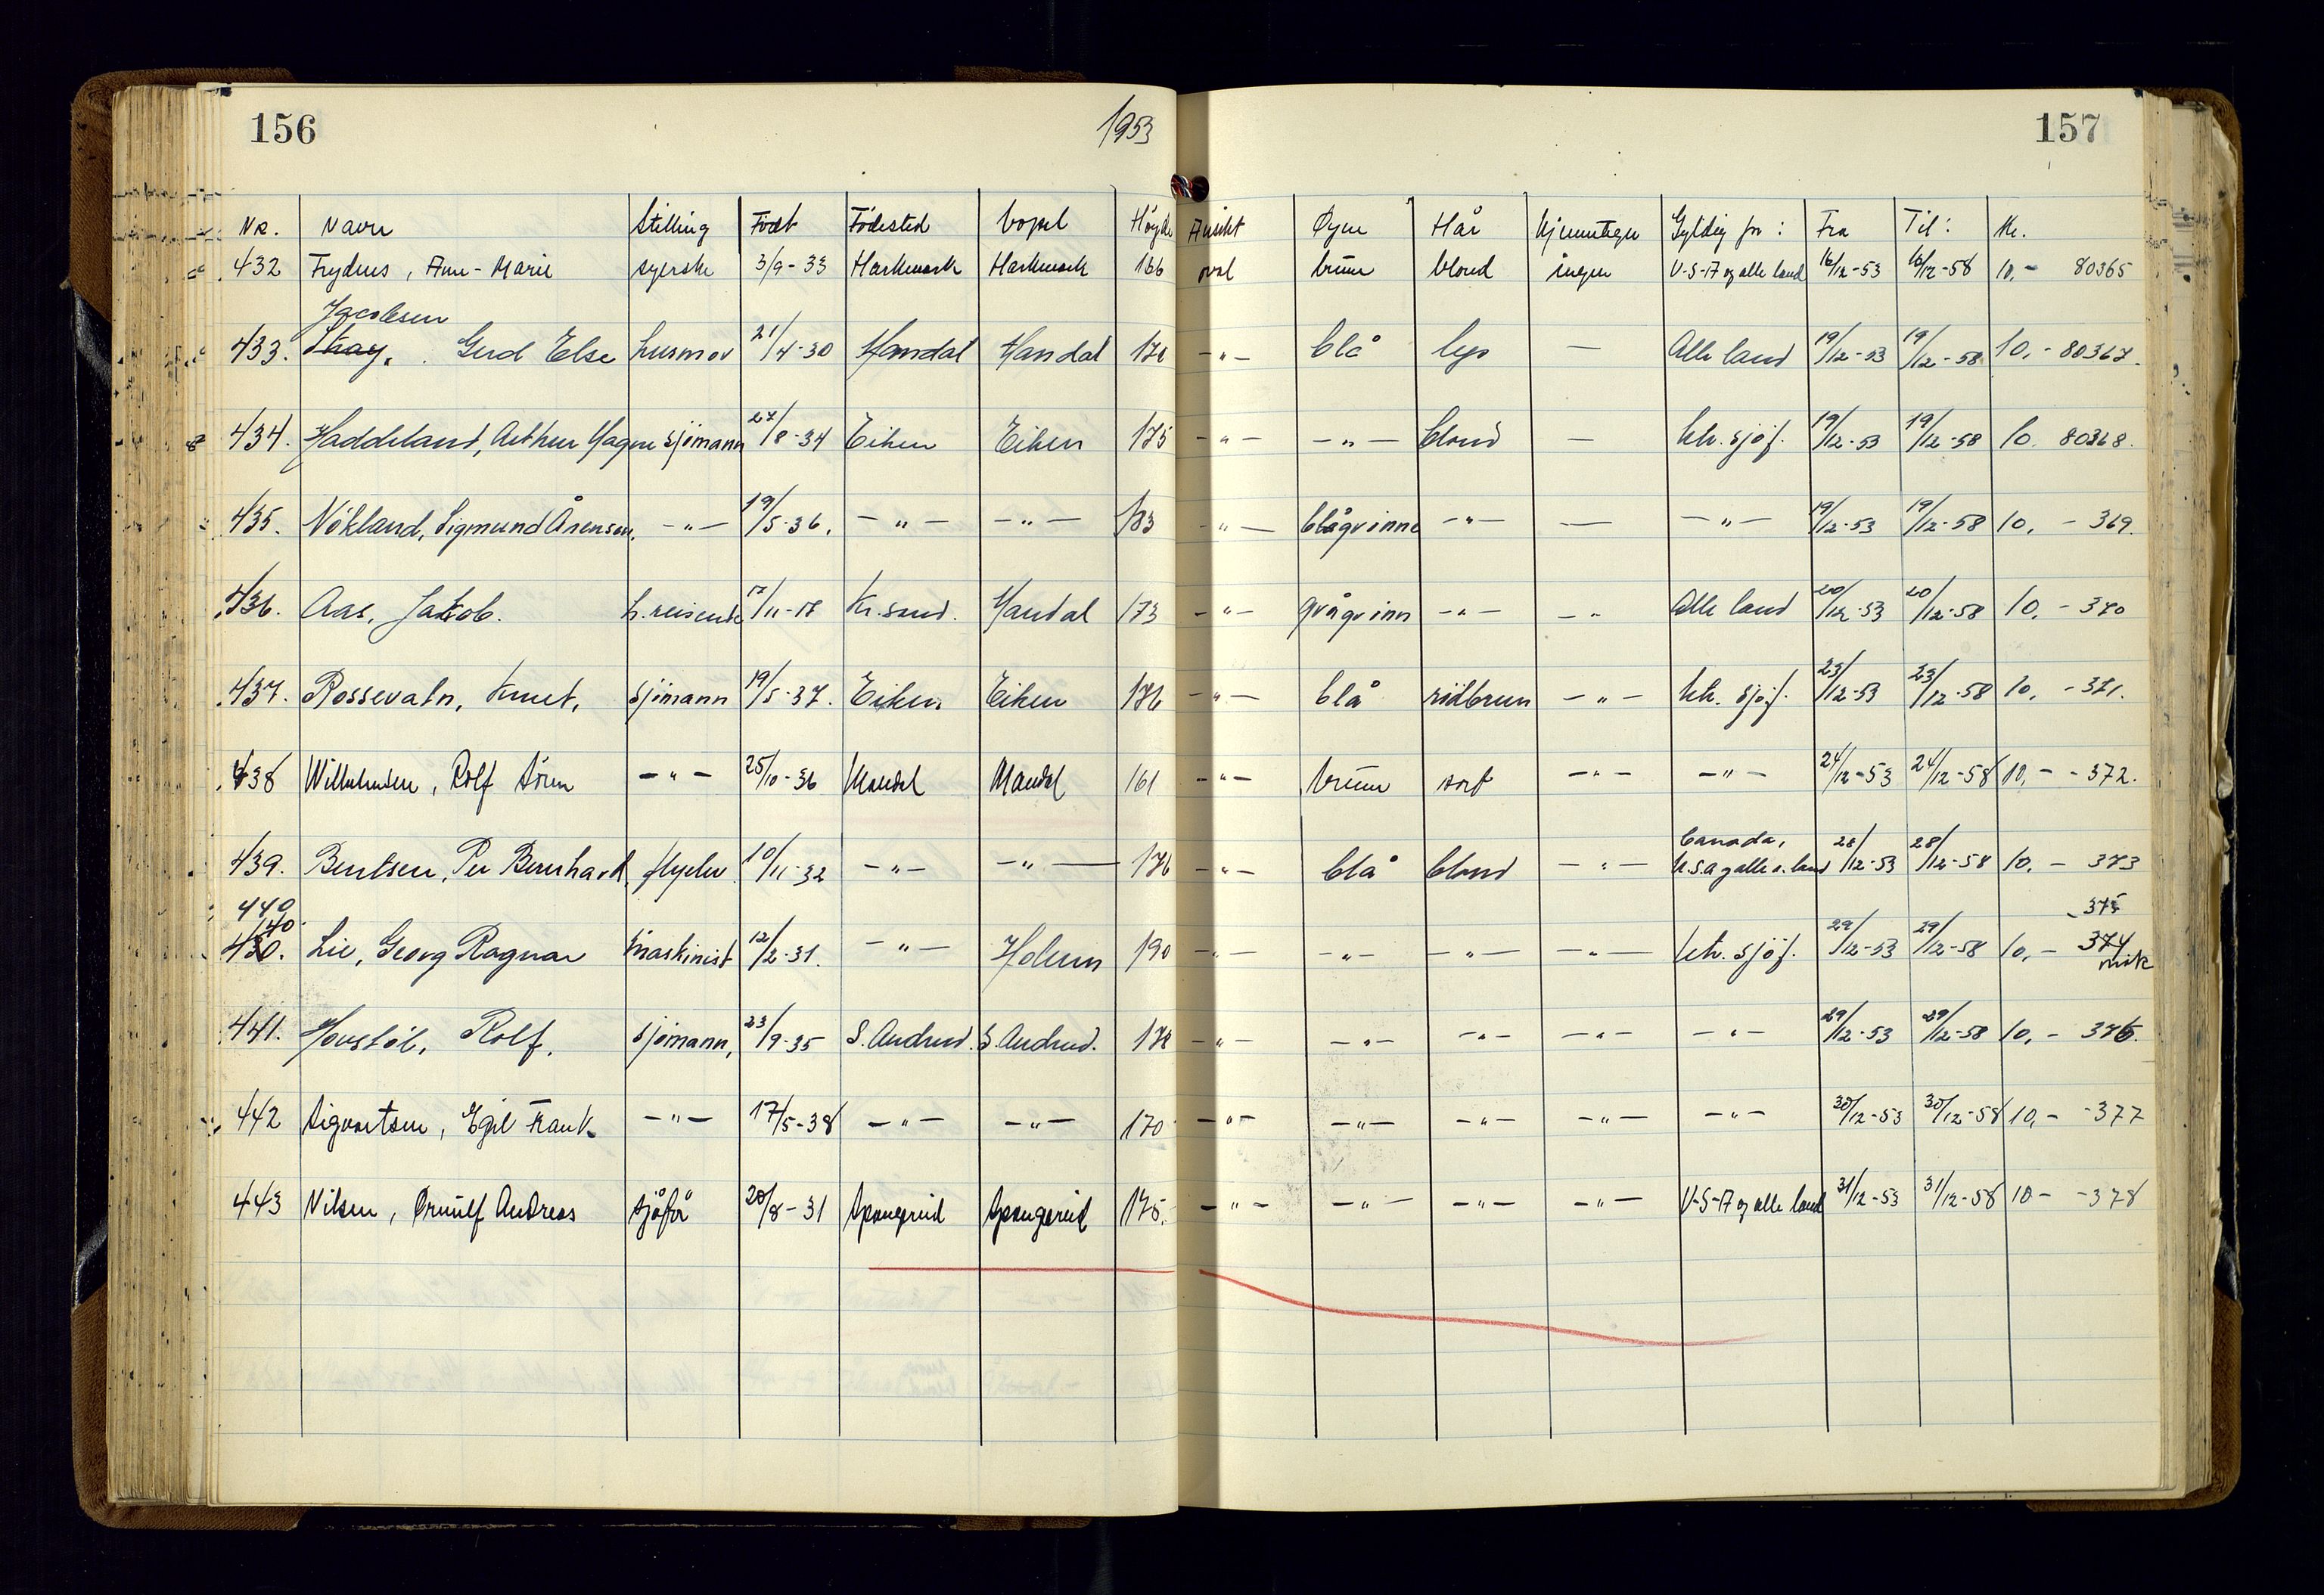 156 1953 157
Nr. Navn Stilling Født Födested bopel Höyde Ansikt Øyne Hår Kjennetegn Gyldig for: Fra Til: Kr.
432 Frydnes, Anne-Marie syerske 3/9-33 Harkmark Harkmark 166 oval brune blond ingen U-S-A og alle land 16/12-53 16/12-58 10,- 80365
Jacobsen
433. Stray. Gerd Else husmor 21/4-30 Mandal Mandal 170 -"- blå lys — Alle land 19/12-53 19/12-58 10,- 80367.
434. Haddeland, Arthur Magne sjömann 27/8-34 Eiken Eiken 175 -"- -"- blond — utr. sjöf. 19/12-53 19/12-58 10. 80368.
435. Nökland, Sigmund Årensen. -"- 19/5-36. -"- -"- 183 -"- blågrönne -"- — -"- 19/12-53 19/12-58 10, - 369.
436. Aas, Jakob. h.reisende 17/11-17 Kr.sund. Mandal 173 -"- grågrönn -"- -" Alle land 20/12-53 20/12-58 10, - 370
437. Rossevatn, Knut, sjömann 19/5-37. Eiken Eiken 176 -"- blå rödbrun -"- utr. sjöf. 23/12-53 23/12-58 10, - 371.
438 Wilhelmsen, Rolf Sören -"- 25/10-36 Mandal Mandal 161 -"- brune sort -"- -"- 24/12-53 24/12-58 10,- -372.
Canada,
439. Bentsen, Per Bernhard, flyelev. 10/11-32 -"- -"- 176 -"- blå blond -"- U.S.A og alle a. land 28/12-53 28/12-58 10, - 373
440 -375
40
430. Lie, Georg Ragnar Maskinist 12/2-31. -"- Holum 190 -"- -"- -"- -"- utr. sjöf. 29/12-53 29/12-58 10, - 374
mak
441. Hovstöl, Rolf. sjömann, 23/9-35 S. Audned. S. Audned. 178 -"- -"- -"- -"- -"- 29/12-53 29/12-58 10, - 376.
442 Sigvartsen, Egil Frank -"- 17/5-38 -"- -"- 170 -"- -"- -"- -"- -"- 30/12-53 30/12-58 10,- -377
443 Nilsen, Ørnulf Andreas sjåför 20/8-31 Spangereid Spangereid 175. -"- -"- -"- -"- U-S-A og alle land 31/12-53 31/12-58 10- -378